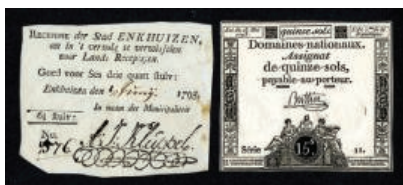 Recepisse der Stad ENKHUIZEN,
om in 't vervolg te verwisselen
voor Lands Recepissen.
Goed voor Ses drie quart stuiv:
Enkhuizen den 1795.
In naam der Municipaliteit
6¾ stuiv:
No.
5376
quinze sols
Domaines nationaux.
Assignat
de quinze sols,
payable au porteur.
Série
15s
11.